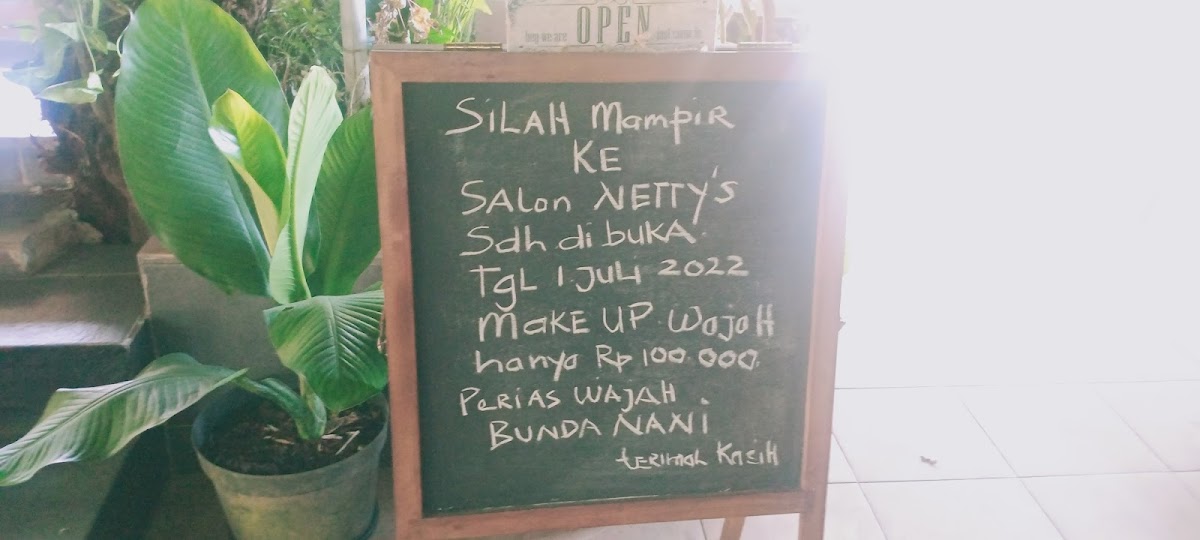 hey we are OPEN just come in
SiLAH MampiR
KE
SALon NETTY'S
Sdh di buKA.
TgL 1 JuLi 2022
MaKE UP WajaH
hanya Rp 100.000.
PeRiAS WAJAH
BUNDA NANi
teRimah KasiH